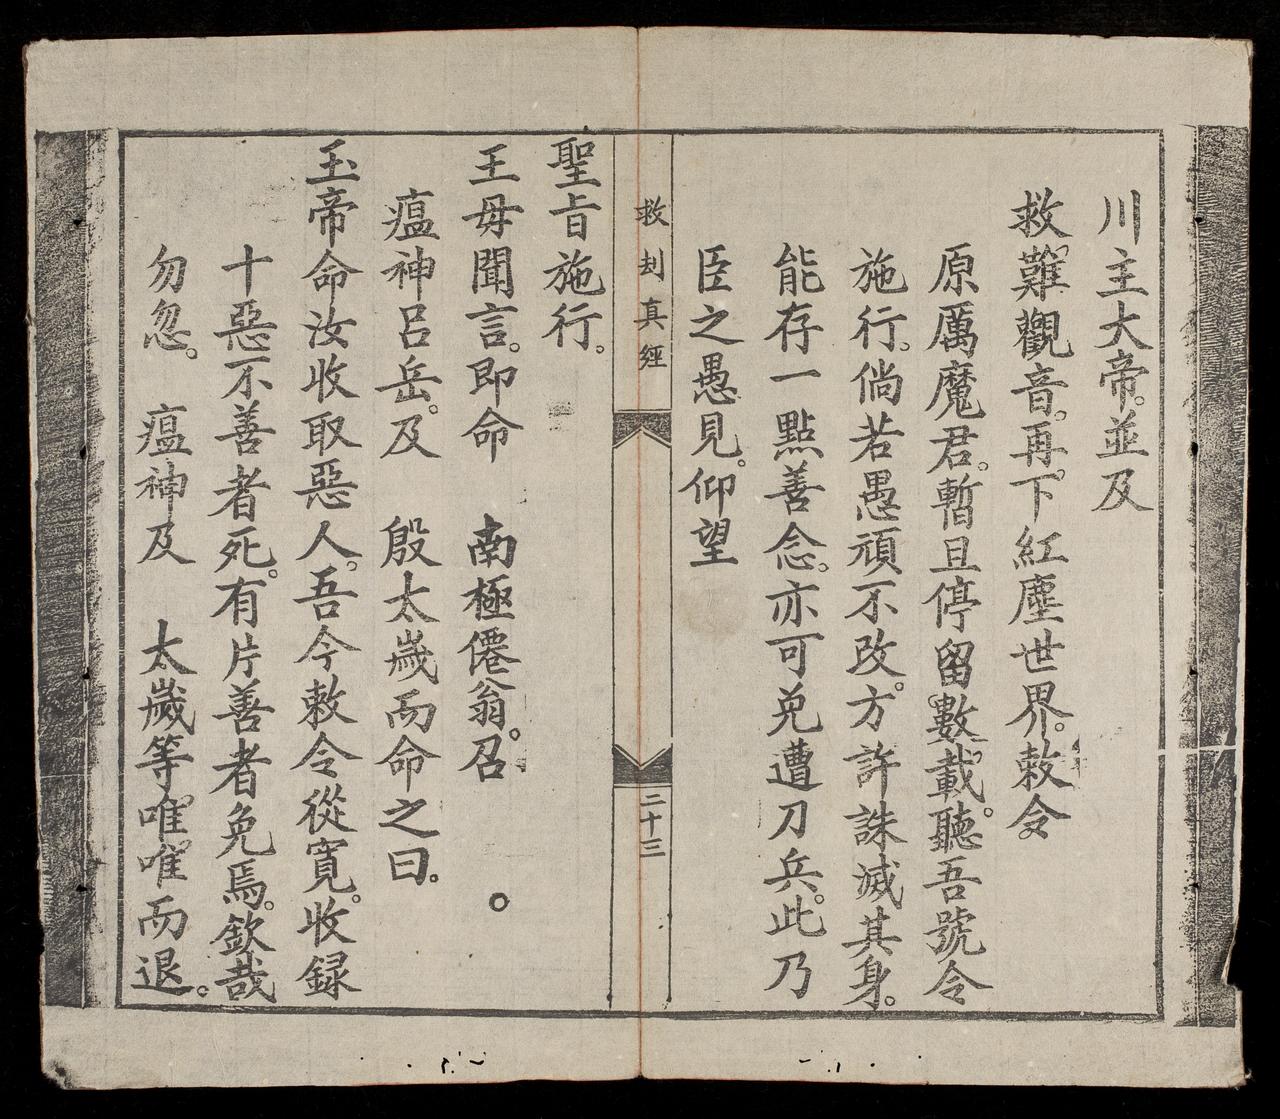 川主大帝。並及
救難觀音。再下紅塵世界。敕令
原厲魔君。暫且停留數載。聽吾號令
施行。倘若愚頑不改。方許誅滅其身。
能存一點善念。亦可免遭刀兵。此乃
臣之愚見。仰望
救刦真經
二十三
聖旨施行。
王毋聞言。即命 南極僊翁。召 。
瘟神呂岳。及 殷太歲而命之曰。
玉帝命汝收取惡人。吾今敕令從寬。收録
十惡不善者死。有片善者免焉。欽哉
勿忽。 瘟神及 太歲等唯唯而退。